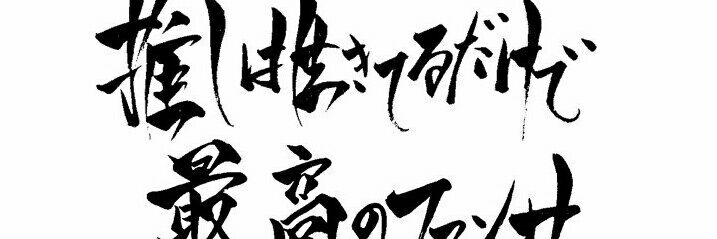 推しは生きてるだけで
最高のファンサ